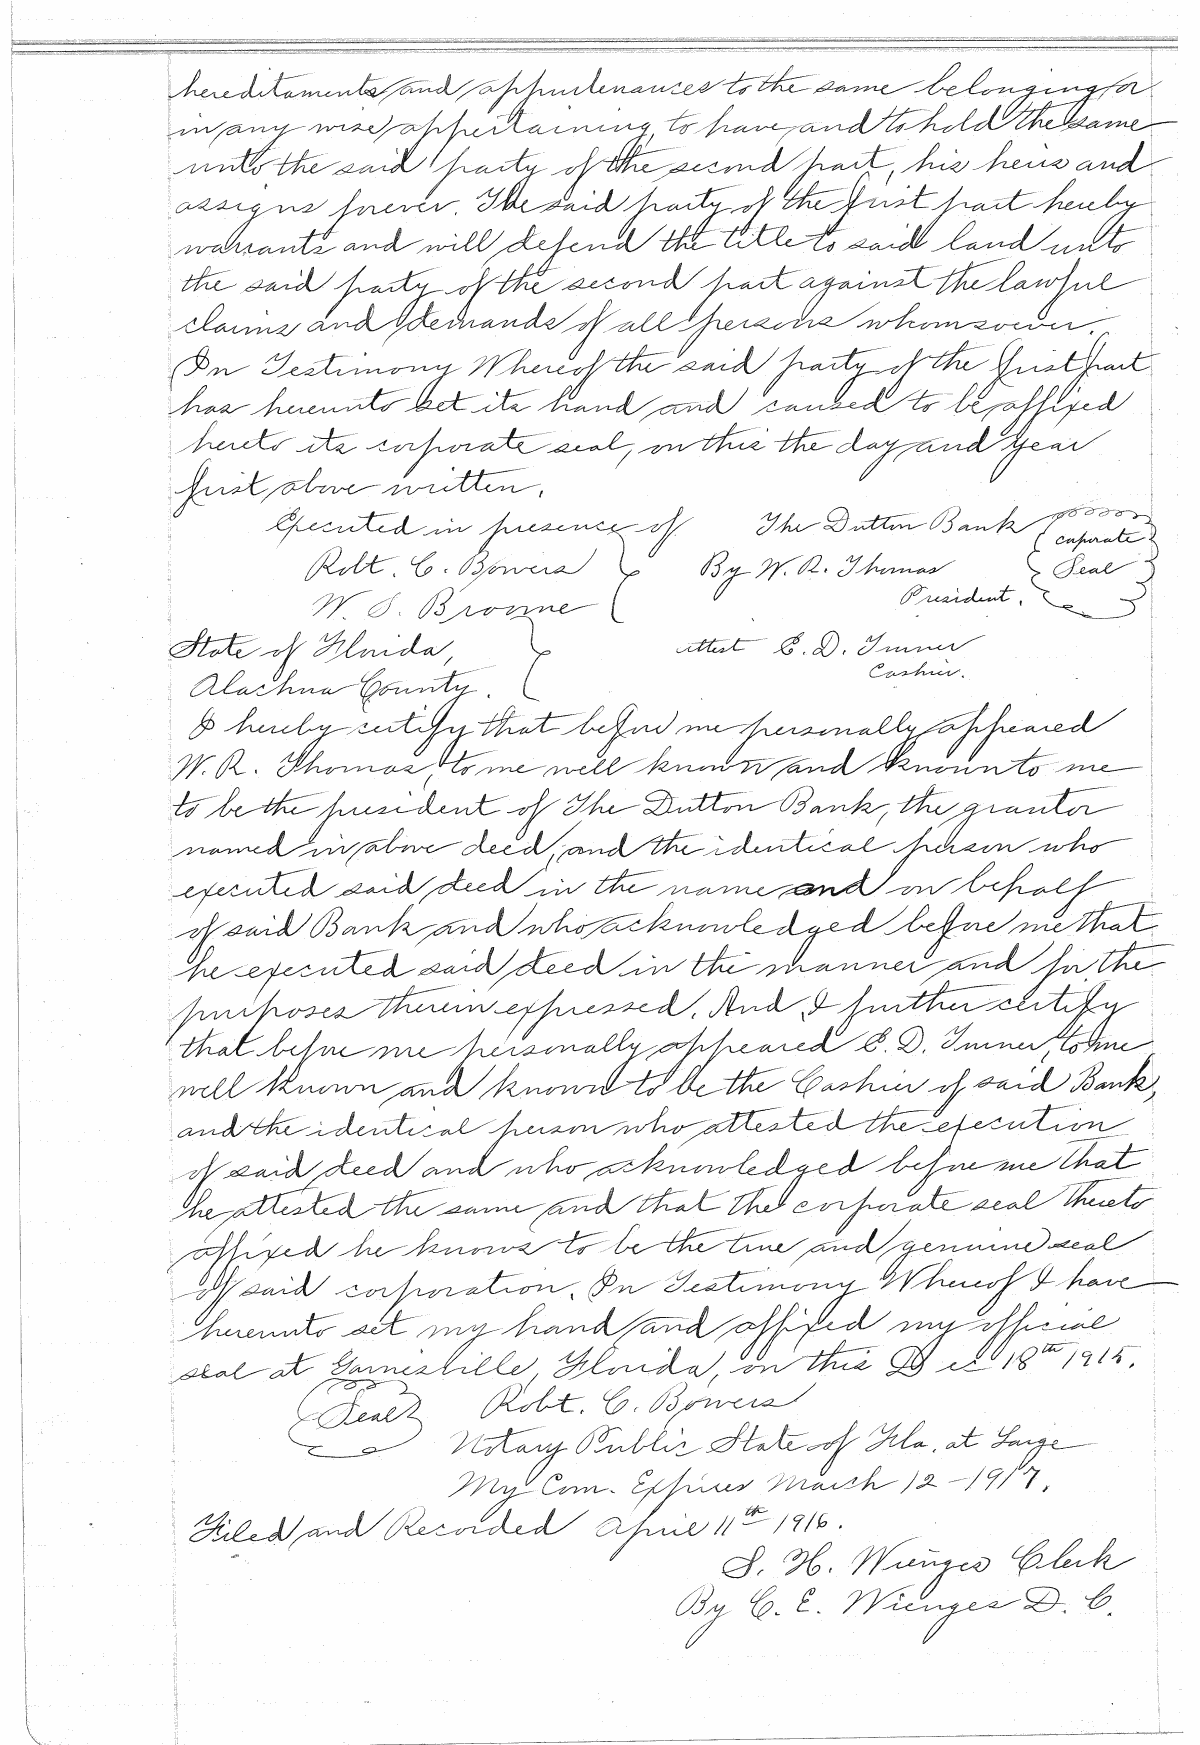 hereditaments and appurtenances to the same belonging or
in any wise appertaining, to have and to hold the same
unto the said party of the second part, his heirs and
assigns forever. The said party of the first part hereby
warrants and will defend the title to said land unto
the said party of the second part against the lawful
claims and demands of all persons whomsoever.
In Testimony Whereof the said party of the first part
has hereunto set its hand and caused to be affixed
hereto its corporate seal, on this the day and year
first above written.
Executed in presence of The Dutton Bank
corporate
Robt. C. Bowers By W. R. Thomas Seal
W. S. Broome President.
State of Florida, attest E. D. Turner
Alachua County. Cashier.
I hereby certify that before me personally appeared
W. R. Thomas, to me well known and known to me
to be the president of The Dutton Bank, the grantor
named in above deed, and the identical person who
executed said deed in the name and on behalf
of said Bank and who acknowledged before me that
he executed said deed in the manner and for the
purposes therein expressed. And I further certify
that before me personally appeared E. D. Turner, to me
well known and known to be the Cashier of said Bank,
and the identical person who attested the execution
of said deed and who acknowledged before me that
he attested the same and that the corporate seal thereto
affixed he knows to be the true and genuine seal
of said corporation. In Testimony Whereof I have
hereunto set my hand and affixed my official
seal at Gainesville, Florida, on this Dec 18th 1915.
Seal Robt. C. Bowers
Notary Public State of Fla. at Large
My Com. Expires March 12-1917.
Filed and Recorded April 11th 1916.
S. H. Wienges Clerk
By C. E. Wienges D. C.